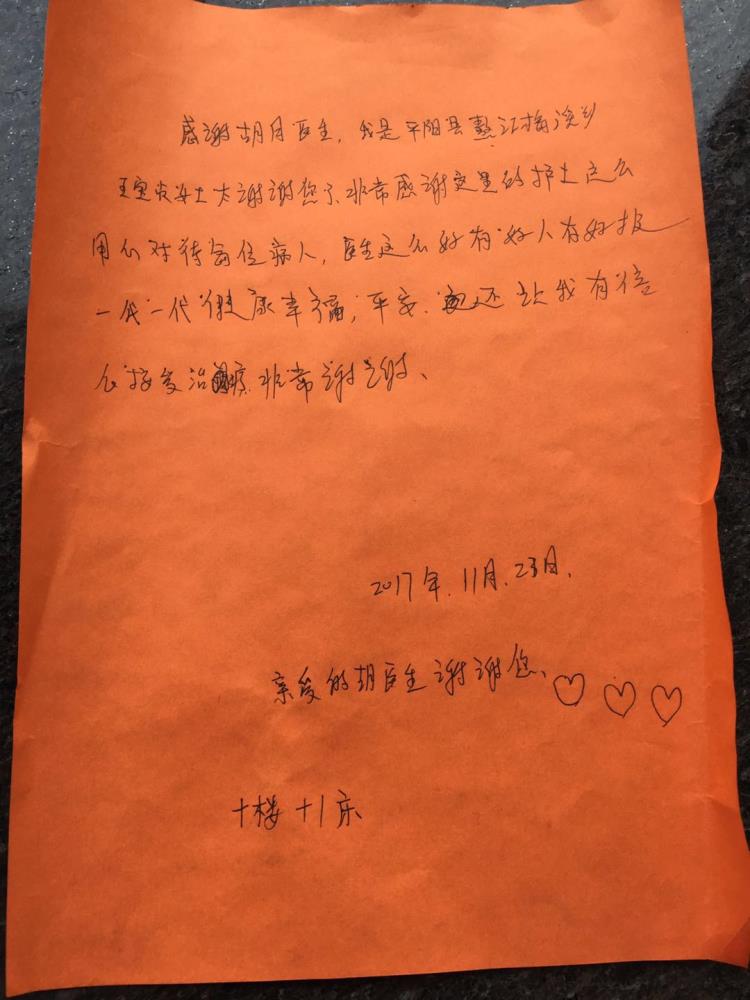 感谢胡月医生，我是平阳县鳌江梅溪乡
王宝女士太谢谢您了、非常感谢这里的护士这么
用心对待每位病人，医生这么好有好人有好报
一代一代健康幸福，平安．还让我有信
心接受治疗．非常谢谢、
2017年.11月.23日.
亲爱的胡医生谢谢您、
十楼十1床